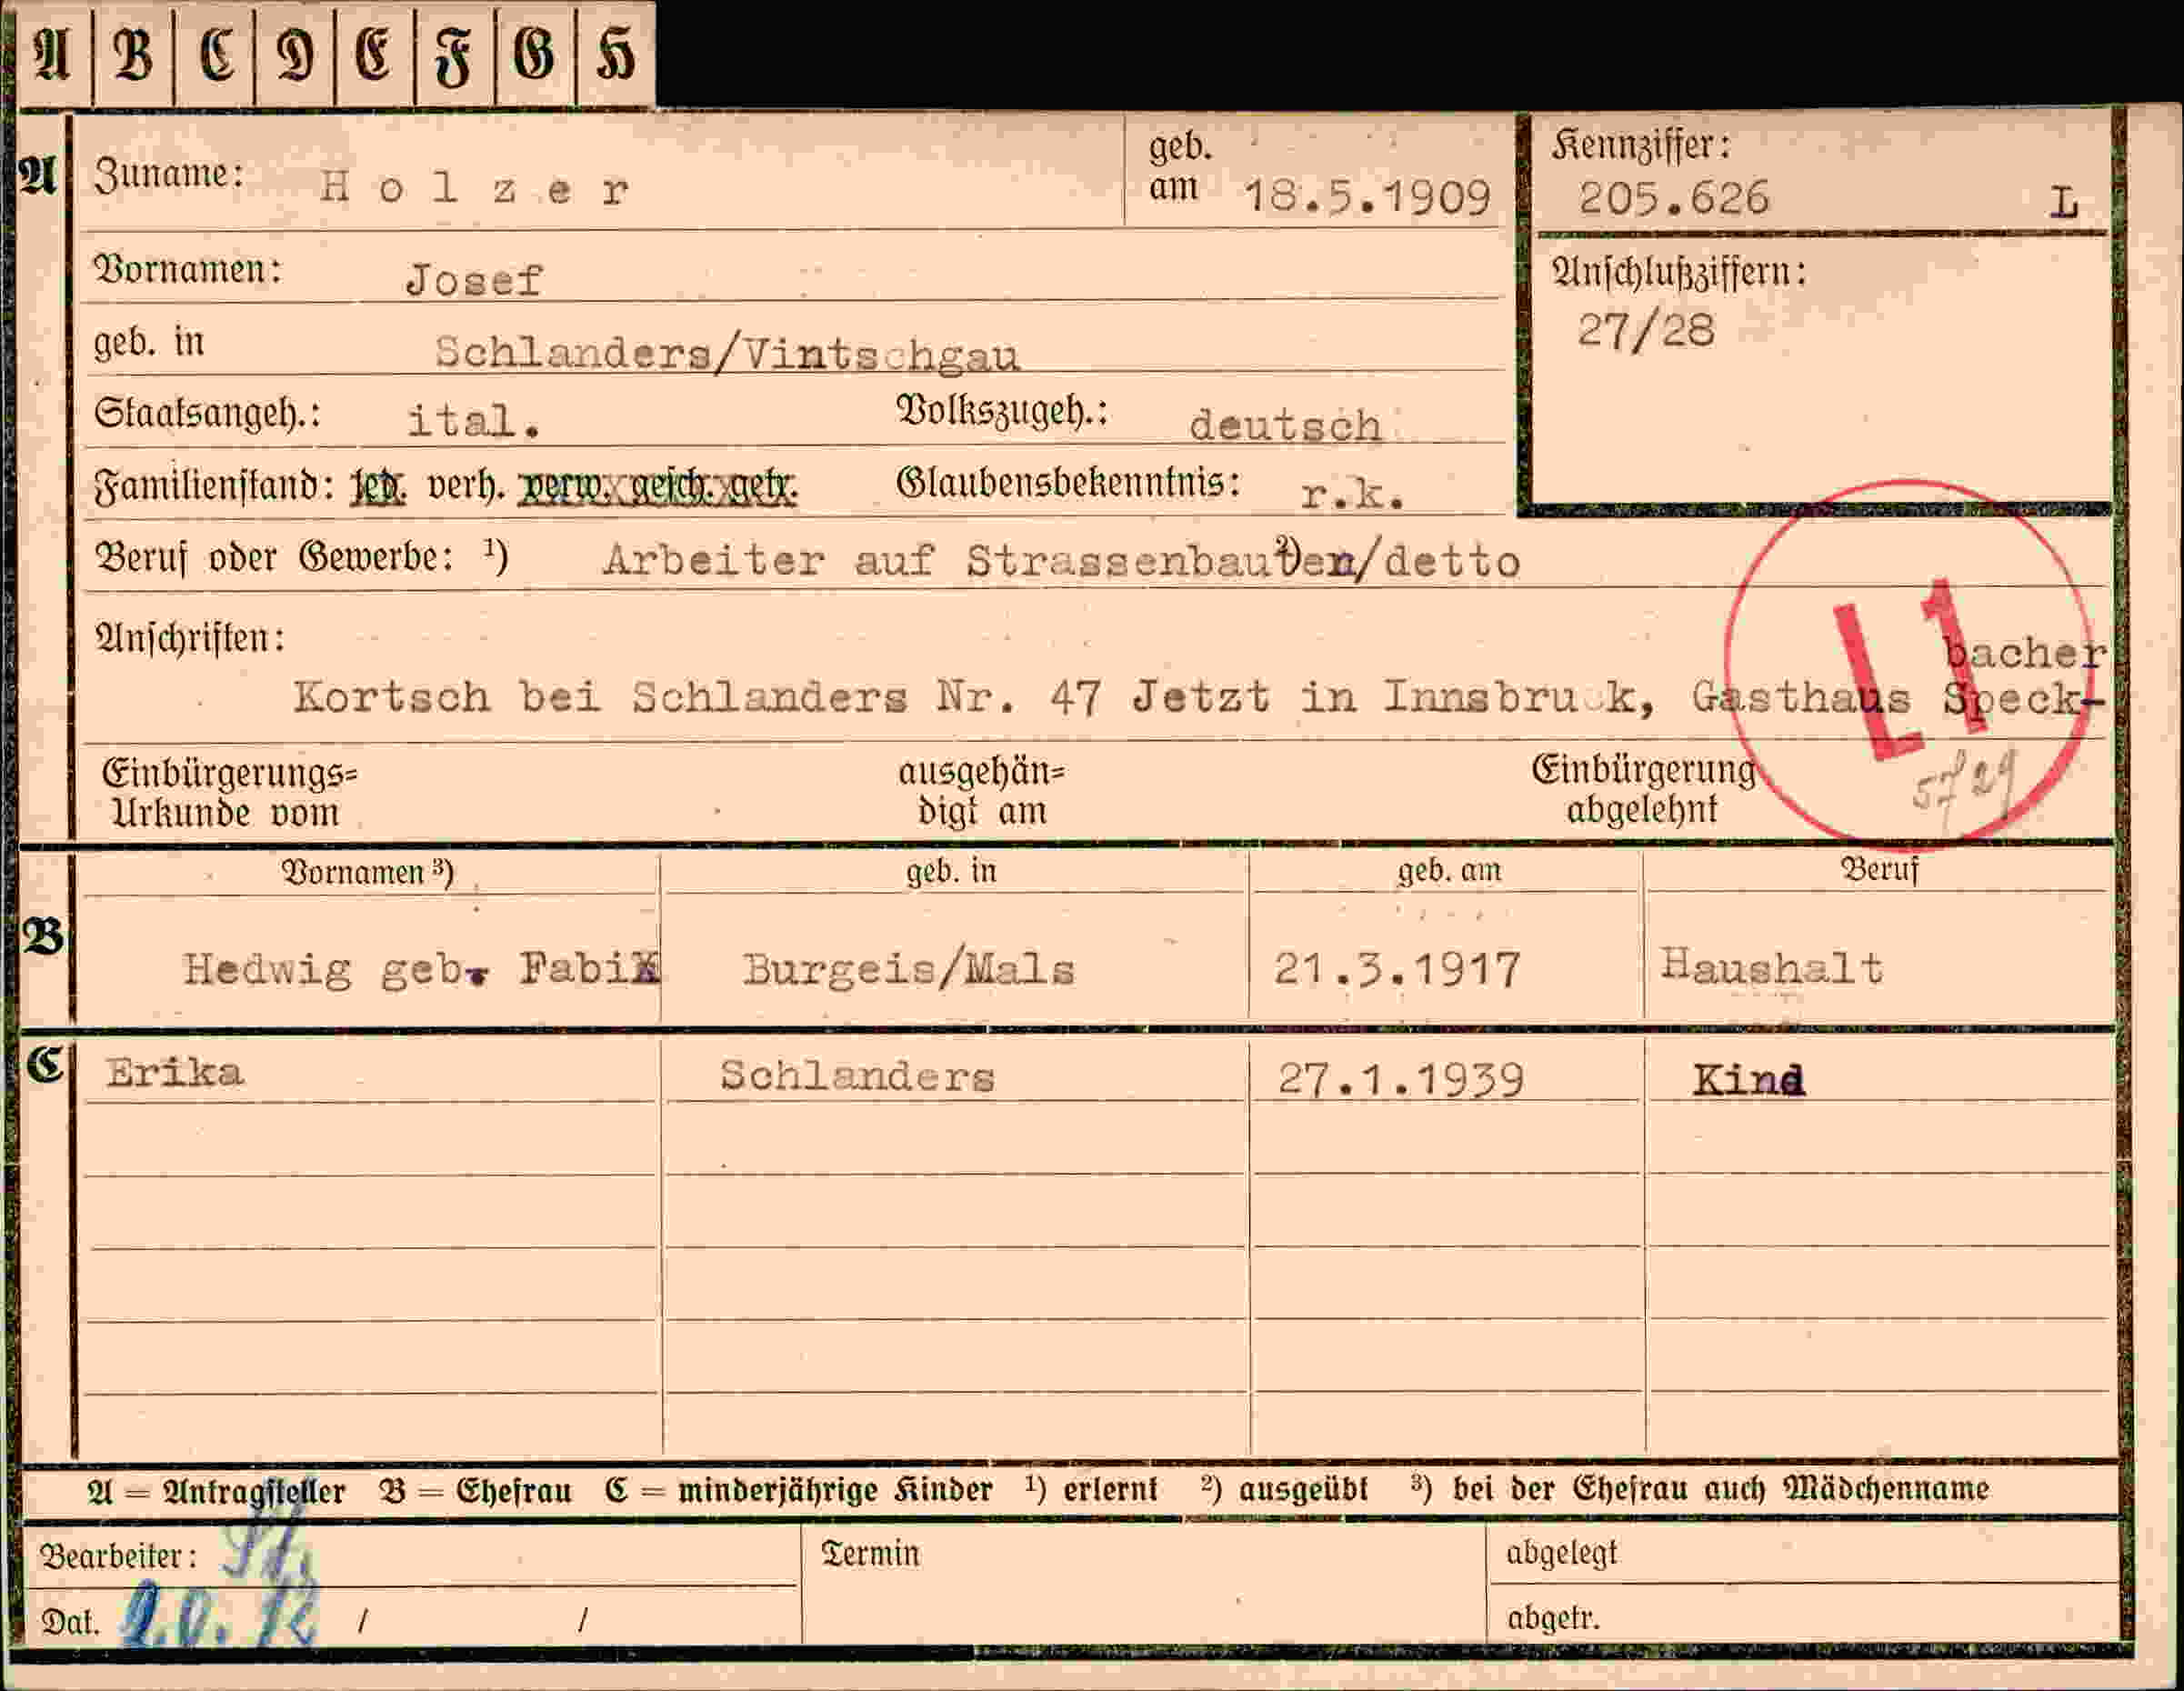 A B C D E F G H
A Zuname: Holzer geb. am 18.5.1909 Kennziffer: 205.626 L
Vornamen: Josef Anschlußziffern: 27/28
geb. in Schlanders/Vintschgau
Staatsangeh.: ital. Volkszugeh.: deutsch
Familienstand: led. verh. verw. gesch. getr. Glaubensbekenntnis: r.k.
Beruf oder Gewerbe: ¹) Arbeiter auf Strassenbauten/detto ²)
L1
Anschriften: bacher
Kortsch bei Schlanders Nr. 47 Jetzt in Innsbruck, Gasthaus Speck-
Einbürgerungs= Urkunde vom ausgehän= digt am Einbürgerung abgelehnt
Vornamen ³) geb. in geb. am Beruf
B Hedwig geb. Fabi Burgeis/Mals 21.3.1917 Haushalt
C Erika Schlanders 27.1.1939 Kind
A = Antragsteller B = Ehefrau C = minderjährige Kinder ¹) erlernt ²) ausgeübt ³) bei der Ehefrau auch Mädchenname
Bearbeiter: Termin abgelegt
Dat. / / abgetr.